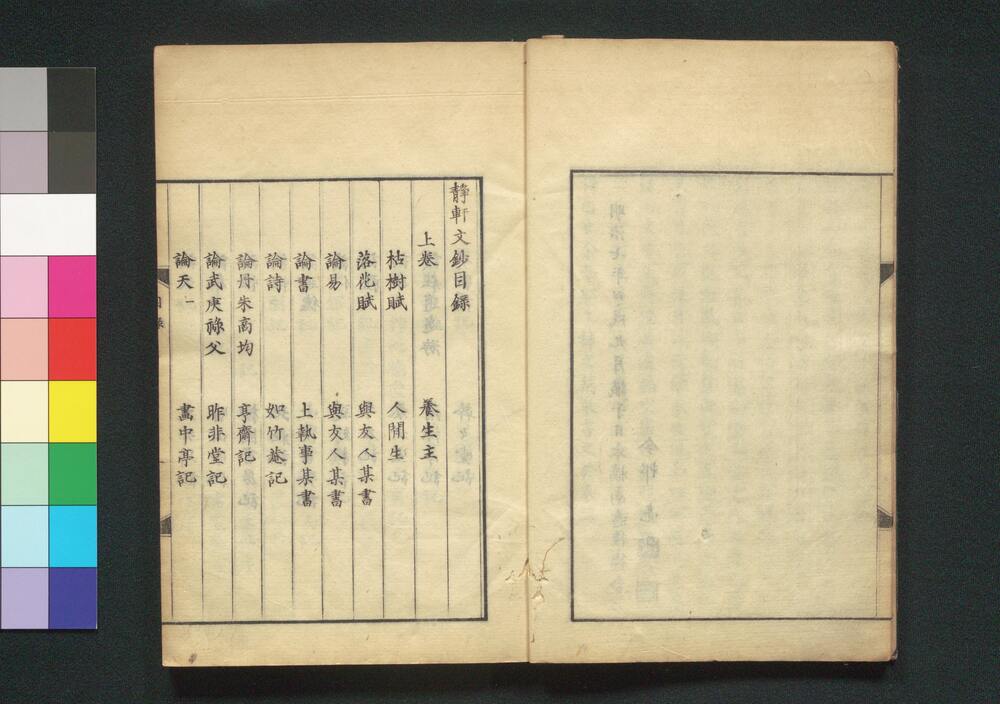 静軒文鈔目録
上卷
養生主
枯樹賦
人間生
落花賦
與友人某書
論易
與友人某書
論書
上執事某書
論詩
如竹菴記
論丹朱商均
亭齋記
論武庚祿父
昨非堂記
論天一
畵中亭記
目録